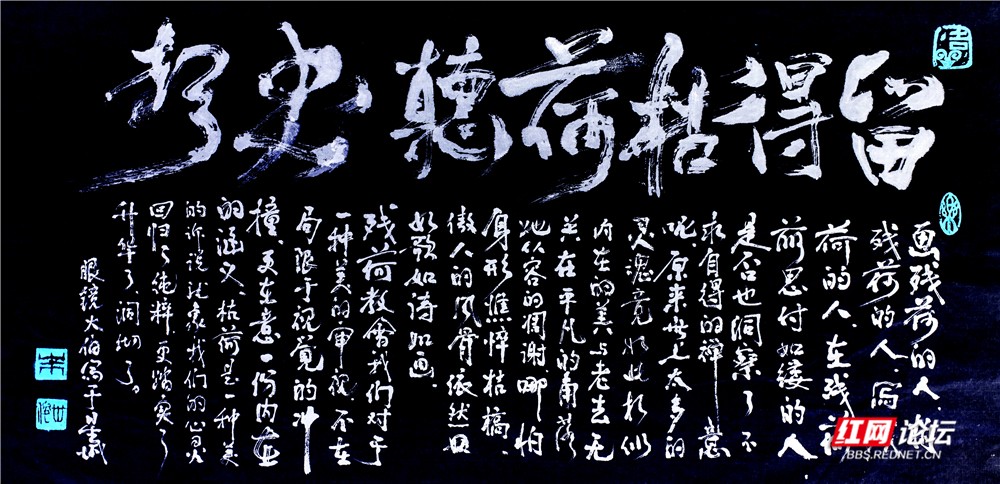 留得枯荷聽声
画残荷的人、
残荷的人、写
荷的人、在残
前思忖如缕的人
是否也洞察了不
求自得的禅意
呢,原来世上太多的
灵魂竟如此相似
内在的美与老去无
关、在平凡的角落
她从容的凋谢哪怕
身形憔悴枯槁、
傲人的风骨依然
如歌如诗如画。
残荷教会我们对于
一种美的审视、不在
局限于视觉的冲
撞、更在意一份内在
的涵义、枯荷是一种美
的诉说我们的心灵
回归了纯粹、更踏实了
升华了洞彻了。
眼镜大伯写于
红网论坛
BBS.REDNET.CN